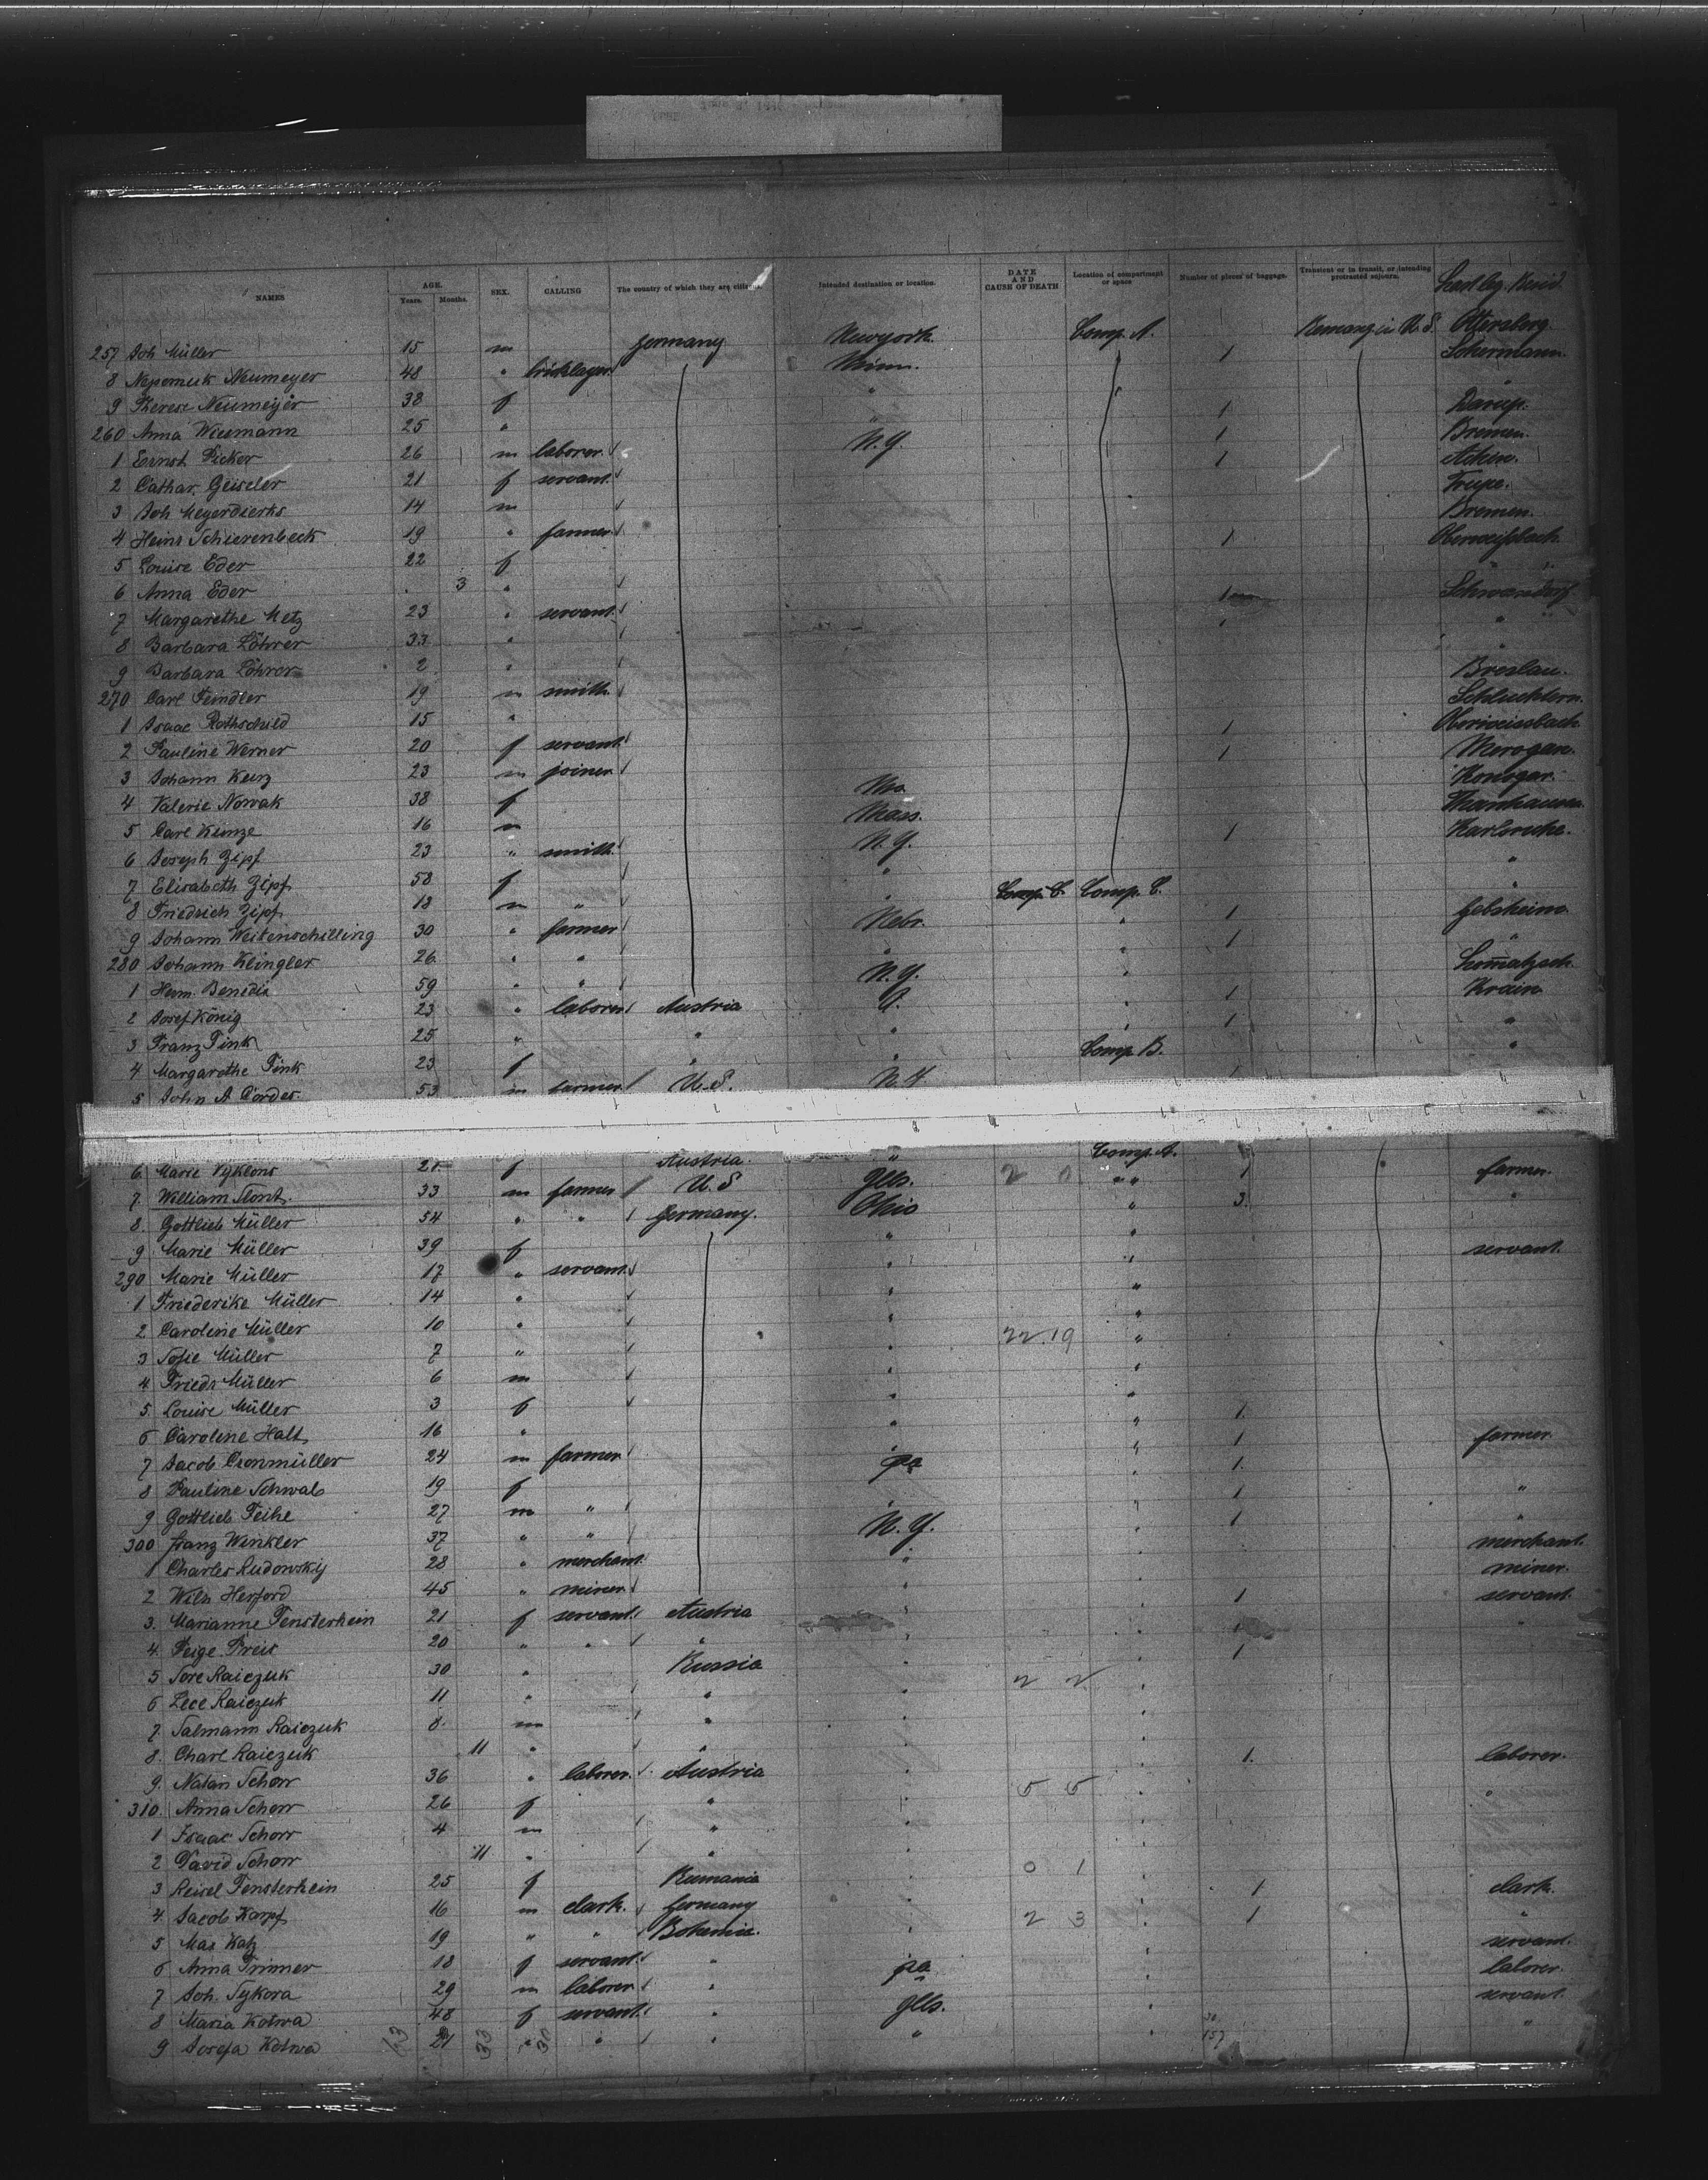 NAMES AGE. Years. Months. SEX. CALLING The country of which they are citizens. Intended destination or location. DATE AND CAUSE OF DEATH Location of compartment or space Number of pieces of baggage. Transient or in transit, or intending protracted sojourn. Last leg. Resid.
257 Joh Müller 15 m Germany Newyork Comp. A. Remang in U. S. Ottersberg
8 Nepomuk Neumeyer 48 " bricklayer Minn. 1
9 Therese Neumeyer 38 f " "
260 Anna Wiemann 25 " " 1
1 Ernst Ficker 26 m laborer N.Y. 1 Bremen.
2 Cathar. Geiseler 21 f servant 1 Achim.
3 Joh Meyerdierks 14 m Trupe.
4 Heinr Schierenbeck 19 " farmer Bremen.
5 Louise Eder 22 f 1 Oberweißbach
6 Anna Eder 3 " "
7 Margarethe Metz 23 " servant 1 Schwandorf
8 Barbara Löhrer 33 " "
9 Barbara Löhrer 2 " "
270 Carl Feindler 19 m smith Breslau.
1 Isaac Rothschild 15 " Schluchtern.
2 Pauline Werner 20 f servant 1 Oberweissbach
3 Johann Kurz 23 m joiner 1
4 Valerie Nowak 38 f Mo.
5 Carl Kunze 16 m Mass.
6 Joseph Zipf 23 " smith N.Y. 1 Karlsruhe.
7 Elisabeth Zipf 58 f " "
8 Friedrich Zipf 18 m " " Comp. C. Comp. C. "
9 Johann Weitenschilling 30 " farmer Nebr. " 1
280 Johann Klingler 26 " " " " 1 "
1 Herm. Benedix 59 " " N.Y. " Lommatzsch
2 Josef König 23 " laborer Austria " 1 Krain
3 Franz Fink 25 " " " " 1 "
4 Margarethe Fink 23 f " " Comp B. "
5 John A Cordes 53 m farmer U.S. N.Y
6 Marie Vyklons 21 f Austria " Comp. A.
7. William Stont. 33 m farmer U. S Ills. 2 0 " " 1 farmer.
8. Gottlieb Müller 54 " " Germany. Ohio " 3 "
9 Marie Müller 39 f " "
290 Marie Müller 17 " servant " " servant
1 Friederike Müller 14 " "
2 Caroline Müller 10 " " "
3 Sofie Müller 7 " " 22 19 "
4 Friedr Müller 6 m " "
5. Louise Müller 3 f " "
6 Caroline Halt 16 " " " 1
7 Jacob Cronmüller 24 m farmer " " 1 farmer.
8 Pauline Schwab 19 f pa " 1
9 Gottlieb Feihe 27 m " " " 1 "
300 Franz Winkler 37 " " N.Y. " 1 "
1 Charles Rudowskij 28 " merchant " " merchant.
2 Wilh Herford 45 " miner " " miner.
3. Marianne Fensterhein 21 f servant Austria " " 1 servant
4. Feige Freis 20 " " " " " 1 "
5 Sore Raiczuk 30 " Russia " " 1
6 Lece Raiczuk 11 " " " 2 2 "
7. Salmann Raiczuk 8 m " " "
8. Charl Raiczuk 11 " " " "
9. Natan Schorr 36 " laborer. Austria " " 1. laborer.
310. Anna Schorr 26 f " " 5 5 " "
1 Isaac Schorr 4 m " " "
2 David Schorr 11 " " " "
3 Reisel Fensterhein 25 f Rumania " 0 1 "
4. Jacob Karpf 16 m clark. Germany " " 1 clark.
5 Max Katz 19 " " Bohemia. " 2 3 " 1 "
6 Anna Trimmer 18 f servant " " servant.
7 Joh. Sykora 29 m laborer " pa " laborer.
8 Maria Kotwa 48 f servant " Ills. " servant
9 Josefa Kotwa 21 " " " " " "
63 33 30 157